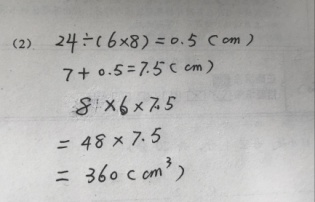 (2) 24÷(6×8)=0.5(cm)
7+0.5=7.5(cm)
8×6×7.5
=48×7.5
=360(cm³)